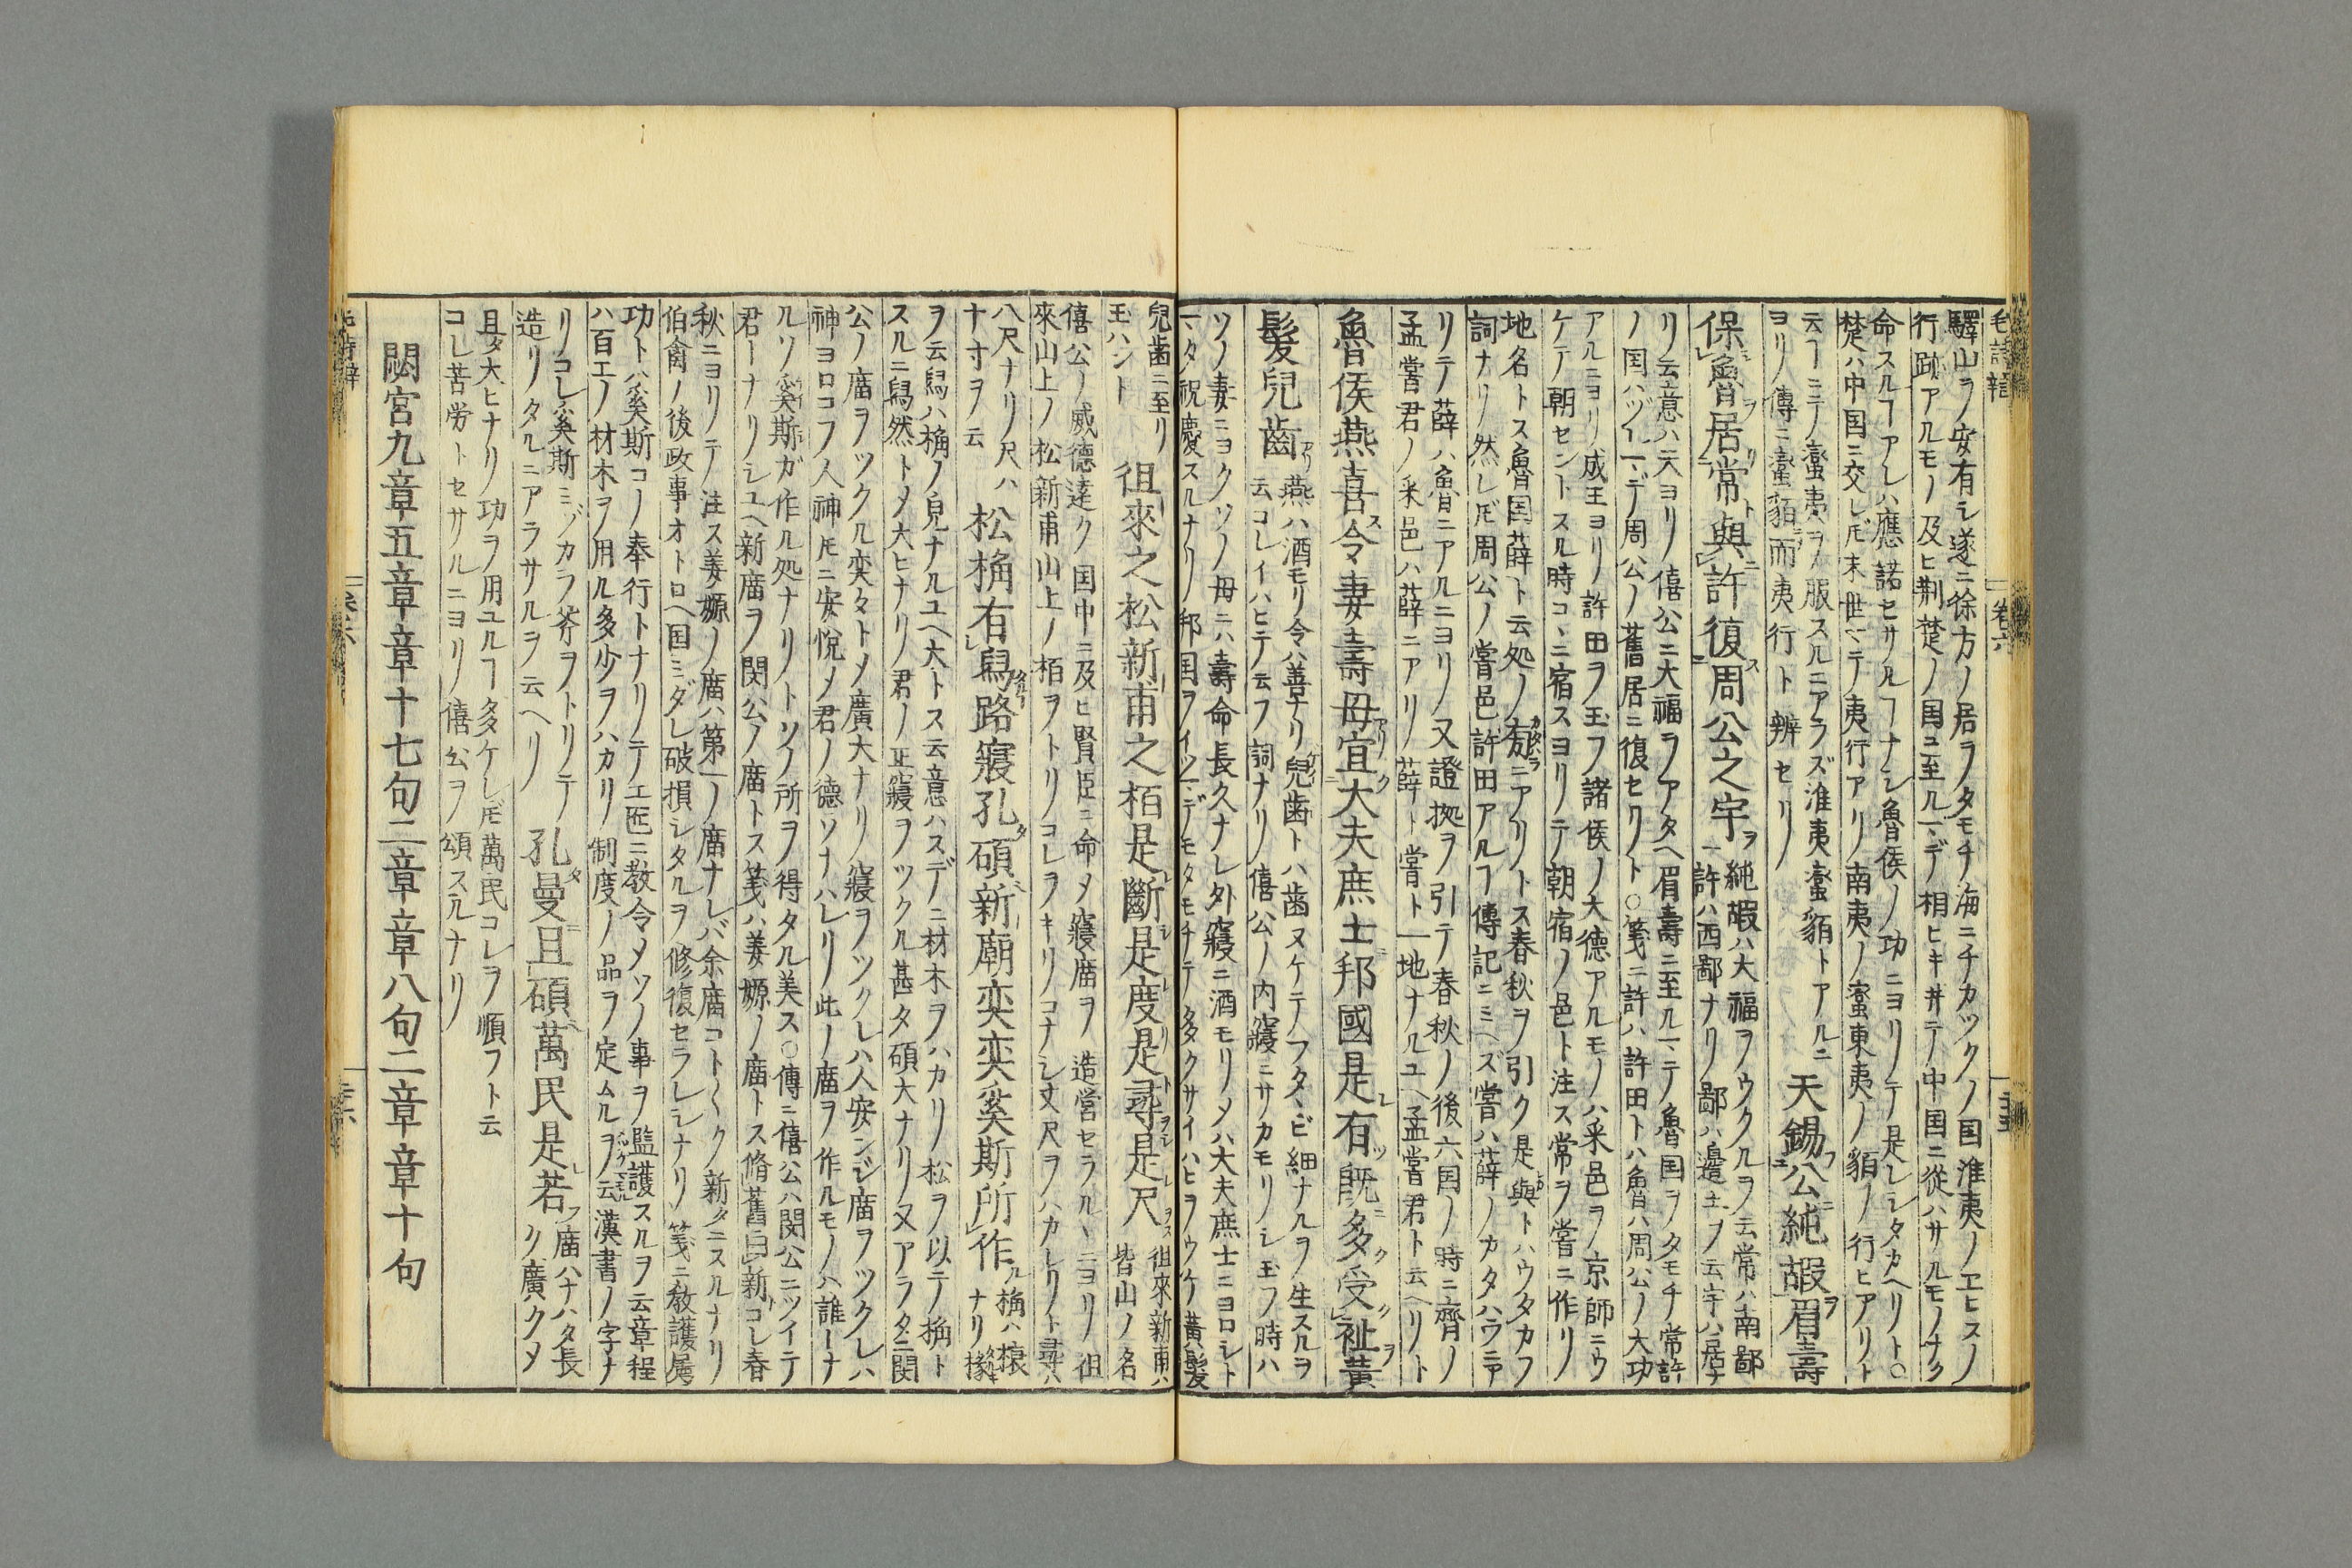 毛詩辞 卷六
驛山ヲノ安有シ遂ニ徐方ノ居ヲタモチ海ニチカツクノ国淮夷ノエヒスノ
行跡アルモノ及ヒ荆楚ノ国ユ至ルマデ相ヒキ井テ中国ニ從ハサルモノナク
命スルヿアレハ應諾セサルヿナシ魯侯ノ功ニヨリテ是レシタカヘリト○
楚ハ中国ニ交レ𪜈末世マテ夷行アリ南夷ノ蛮東夷ノ貊ノ行ヒアリト
云ヿニテノ蛮夷ヲ服スルニアラズ淮夷蛮貊トアルニ
ヨリノ傳ニ蛮貊而夷行ト辨セリ
天錫公純嘏眉壽
保魯居常與許復周公之宇
純嘏ハ大福ヲウクルヲ云常ハ南鄙
許ハ西鄙ナリ鄙ハ邊土ヲ云宇ハ居ナ
リ云意ハ天ヨリ僖公ニ大福ヲアタヘ眉壽ニ至ルマテ魯国ヲタモチ常許
ノ国ハツマデ周公ノ舊居ニ復セリト○箋ニ許ハ許田トハ魯ハ周公ノ大功
アルニヨリ成王ヨリ許田ヲ玉フ諸侯ノ大德アルモノハ采邑ヲ京師ニウ
ケテ朝セントスル時コヽニ宿スヨリテ朝宿ノ邑ト注ス常ヲ嘗ニ作リ
地名トス魯国薛ト云処ノ旁ニアリトス春秋ヲ引ク是與トハウタカフ
詞ナリ然レ𪜈周公ノ嘗邑許田アルヿ傳記ニミヘズ嘗ハ薛ノカタハラニア
リテ薛ハ魯ニアルニヨリ又證拠ヲ引テ春秋ノ後六国ノ時ニ齊ノ
孟嘗君ノ采邑ハ薛ニアリ薛ト嘗ト一地ナルユヘ孟嘗君ト云ヘリト
魯侯燕喜令妻壽母宜大夫庶士邦國是有既多受祉黃
髮兒齒
燕ハ酒モリ令ハ善ナリ兒歯トハ歯ヌケテフタヽビ細ナルヲ生スルヲ
云コレイハヒテ云フ詞ナリ僖公ノ内寢ニサカモリノシ玉フ時ハ
ソノ妻ニヨクソノ母ニハ壽命長久ナレ外寢ニ酒モリノハ大夫庶士ニヨロシト
マタ祝慶スルナリ邦国ヲイツマデモタモチテ多クサイハヒヲウケ黃髮
兒歯ニ至リ
玉ハント
徂來之松新甫之栢是斷是度是尋是尺
徂來新甫ハ
皆山ノ名
僖公ノ威德達ク国中ニ及ヒ賢臣ニ命メ寢廟ヲ造営セラルヽニヨリ徂
來山上ノ松新甫山上ノ栢ヲトリコレヲキリコナシ丈尺ヲハカレリト尋ハ
八尺ナリ尺ハ
十寸ヲ云
松桷有舄路寢孔碩新廟奕奕奚斯所作
桷ハ榱
ナリ椽
ヲ云舄ハ桷ノ皃ナルユヘ大トス云意ハスデニ材木ヲハカリ松ヲ以テ桷ト
スルニ舄然トメ大ヒナリ君ノ正寢ヲツクル甚タ碩大ナリ又アラタニ閔
公ノ廟ヲツクル奕タトメ廣大ナリ寢ヲツクレハ人安シジ廟ヲツクレハ
神ヨロコフ人神𪜈ニ安悅メ君ノ德ソナハレリ此ノ廟ヲ作ルモノハ誰ーナ
ルソ奚斯ガ作ル処ナリトソノ所ヲ得タル美ス○傳ニ僖公ハ閔公ニツイテ
君ーナリシユヘ新廟ヲ閔公ノ廟トス箋ハ姜嫄ノ廟トス脩舊曰新コレ春
秋ニヨリテ注ス姜嫄ノ廟ハ第一ノ廟ナレバ余廟コト〱ク新タニスルナリ
伯禽ノ後政事オトロヘ国ミダレ破損シタルヲ修復セラレシナリ箋ニ教護属
功トハ奚斯コノ奉行トナリテ工匠ニ教令メソノ事ヲ監護スルヲ云章程
ハ百工ノ材木ヲ用ル多少ヲハカリ制度ノ品ヲ定ムルヲ云漢書ノ字ナ
リコレ奚斯ミヅカラ斧ヲトリテ
造リタルニアラサルヲ云ヘリ
孔曼且碩萬民是若
廟ハナハタ長
ク廣クメ
且タ大ヒナリ功ヲ用ユルヿ多ケレ𪜈萬民コレヲ順フト云
コレ苦労トセサルニヨリ僖公ヲ頌スルナリ
閟宮九章五章章十七句二章章八句二章章十句